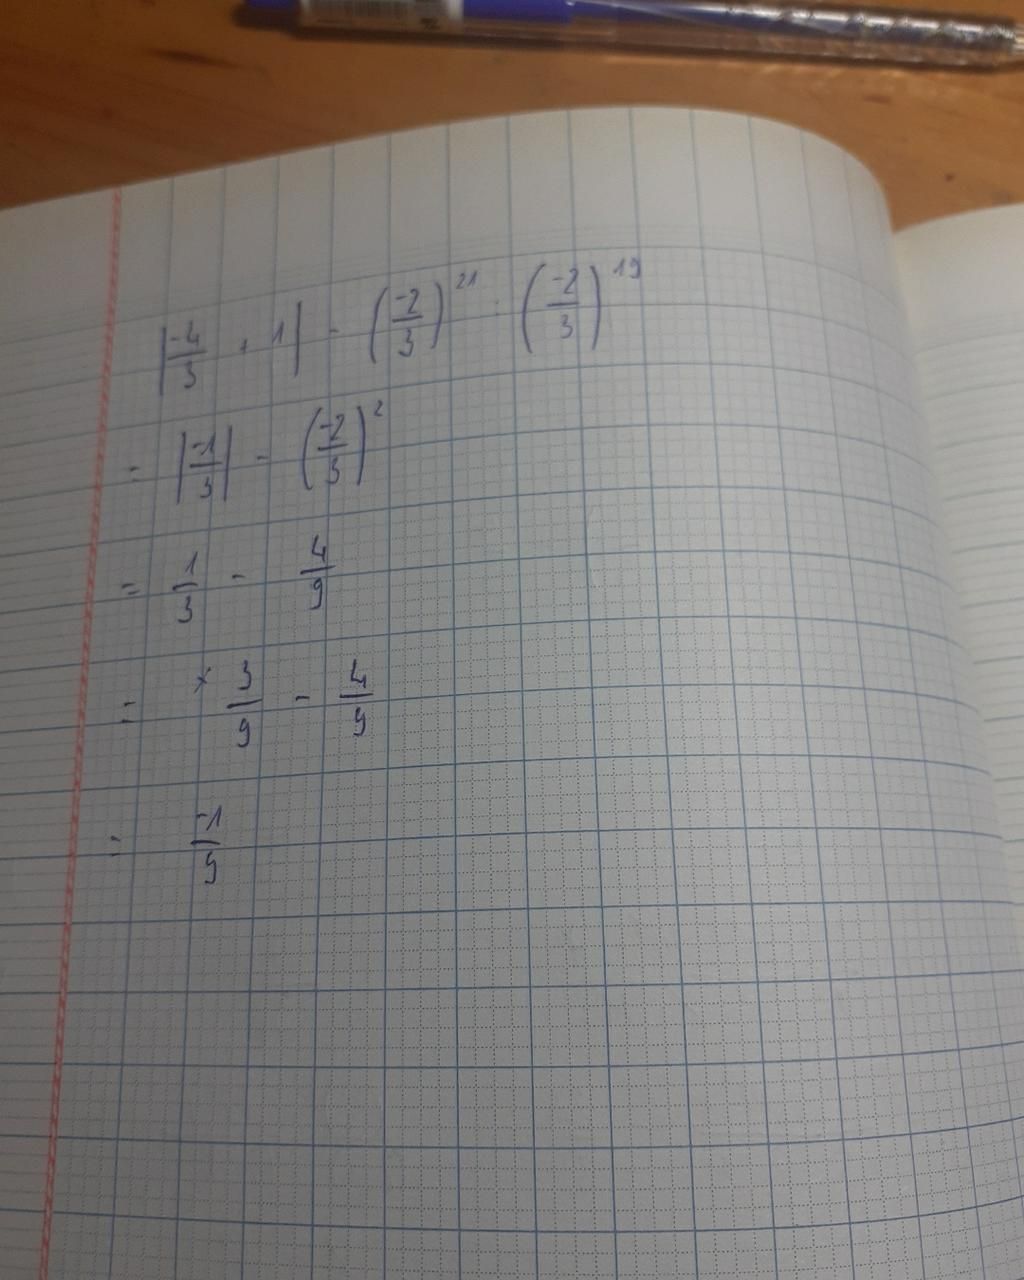 |-4/3 + 1| - (-2/3)^21 : (-2/3)^19
= |-1/3| - (-2/3)^2
= 1/3 - 4/9
= × 3/9 - 4/9
= -1/9